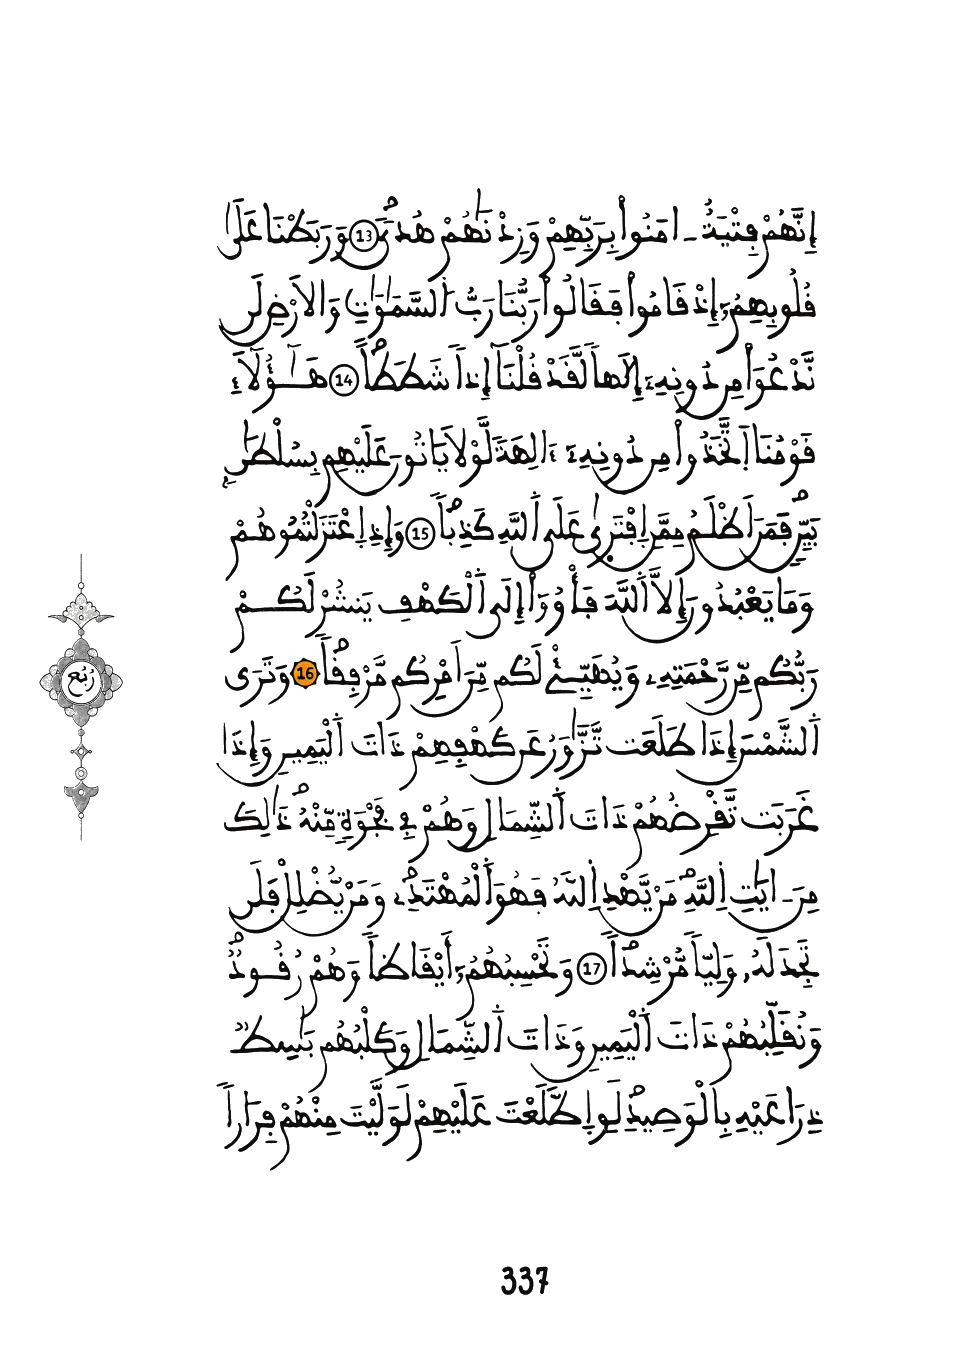 إِنَّهُمْ فِتْيَةٌ ـ اٰمَنُواْ بِرَبِّهِمْ وَزِدْنَٰهُمْ هُدىٗ 13 وَرَبَطْنَا عَلَىٰ
قُلُوبِهِمُۥٓ إِذْ قَامُواْ فَقَالُواْ رَبُّنَا رَبُّ اُ۬لسَّمَٰوَٰتِ وَالَارْضِ لَن
نَّدْعُوَاْ مِن دُونِهِۦٓ إِلَٰهاٗ لَّقَدْ قُلْنَآ إِذاٗ شَطَطاًۖ 14 هَٰٓؤُلَآءِ
قَوْمُنَا اَ۪تَّخَذُواْ مِن دُونِهِۦٓ ءَالِهَةٗ لَّوْلَا يَاتُونَ عَلَيْهِم بِسُلْطَٰنِۢ
بَيِّنٖۖ فَمَنَ اَظْلَمُ مِمَّنِ اِ۪فْتَر۪يٰ عَلَى اَ۬للَّهِ كَذِباٗۖ 15 وَإِذِ اِ۪عْتَزَلْتُمُوهُمْ
وَمَا يَعْبُدُونَ إِلَّا اَ۬للَّهَ فَأْوُۥٓاْ إِلَى اَ۬لْكَهْفِ يَنشُرْ لَكُمْ
رَبُّكُم مِّن رَّحْمَتِهِۦ وَيُهَيِّئْ لَكُم مِّنَ اَمْرِكُم مَّرْفِقاٗۖ 16 وَتَرَى
اَ۬لشَّمْسَ إِذَا طَلَعَت تَّزَّٰوَرُ عَن كَهْفِهِمْ ذَاتَ اَ۬لْيَمِينِ وَإِذَا
غَرَبَت تَّقْرِضُهُمْ ذَاتَ اَ۬لشِّمَالِ وَهُمْ فِے فَجْوَةٖ مِّنْهُۖ ذَٰلِكَ
مِنَ ـ اٰيَٰتِ اِ۬للَّهِۖ مَنْ يَّهْدِ اِ۬للَّهُ فَهُوَ اَ۬لْمُهْتَدِۦۖ وَمَنْ يُّضْلِلْ فَلَن
تَجِدَ لَهُۥ وَلِيّاٗ مُّرْشِداٗۖ 17 وَتَحْسِبُهُمُۥٓ أَيْقَاظاٗ وَهُمْ رُقُودٞۖ
وَنُقَلِّبُهُمْ ذَاتَ اَ۬لْيَمِينِ وَذَاتَ اَ۬لشِّمَالِ وَكَلْبُهُم بَٰسِطٞ
ذِرَاعَيْهِ بِالْوَصِيدِۖ لَوِ اِ۪طَّلَعْتَ عَلَيْهِمْ لَوَلَّيْتَ مِنْهُمْ فِرَاراٗ
رُبُع
337